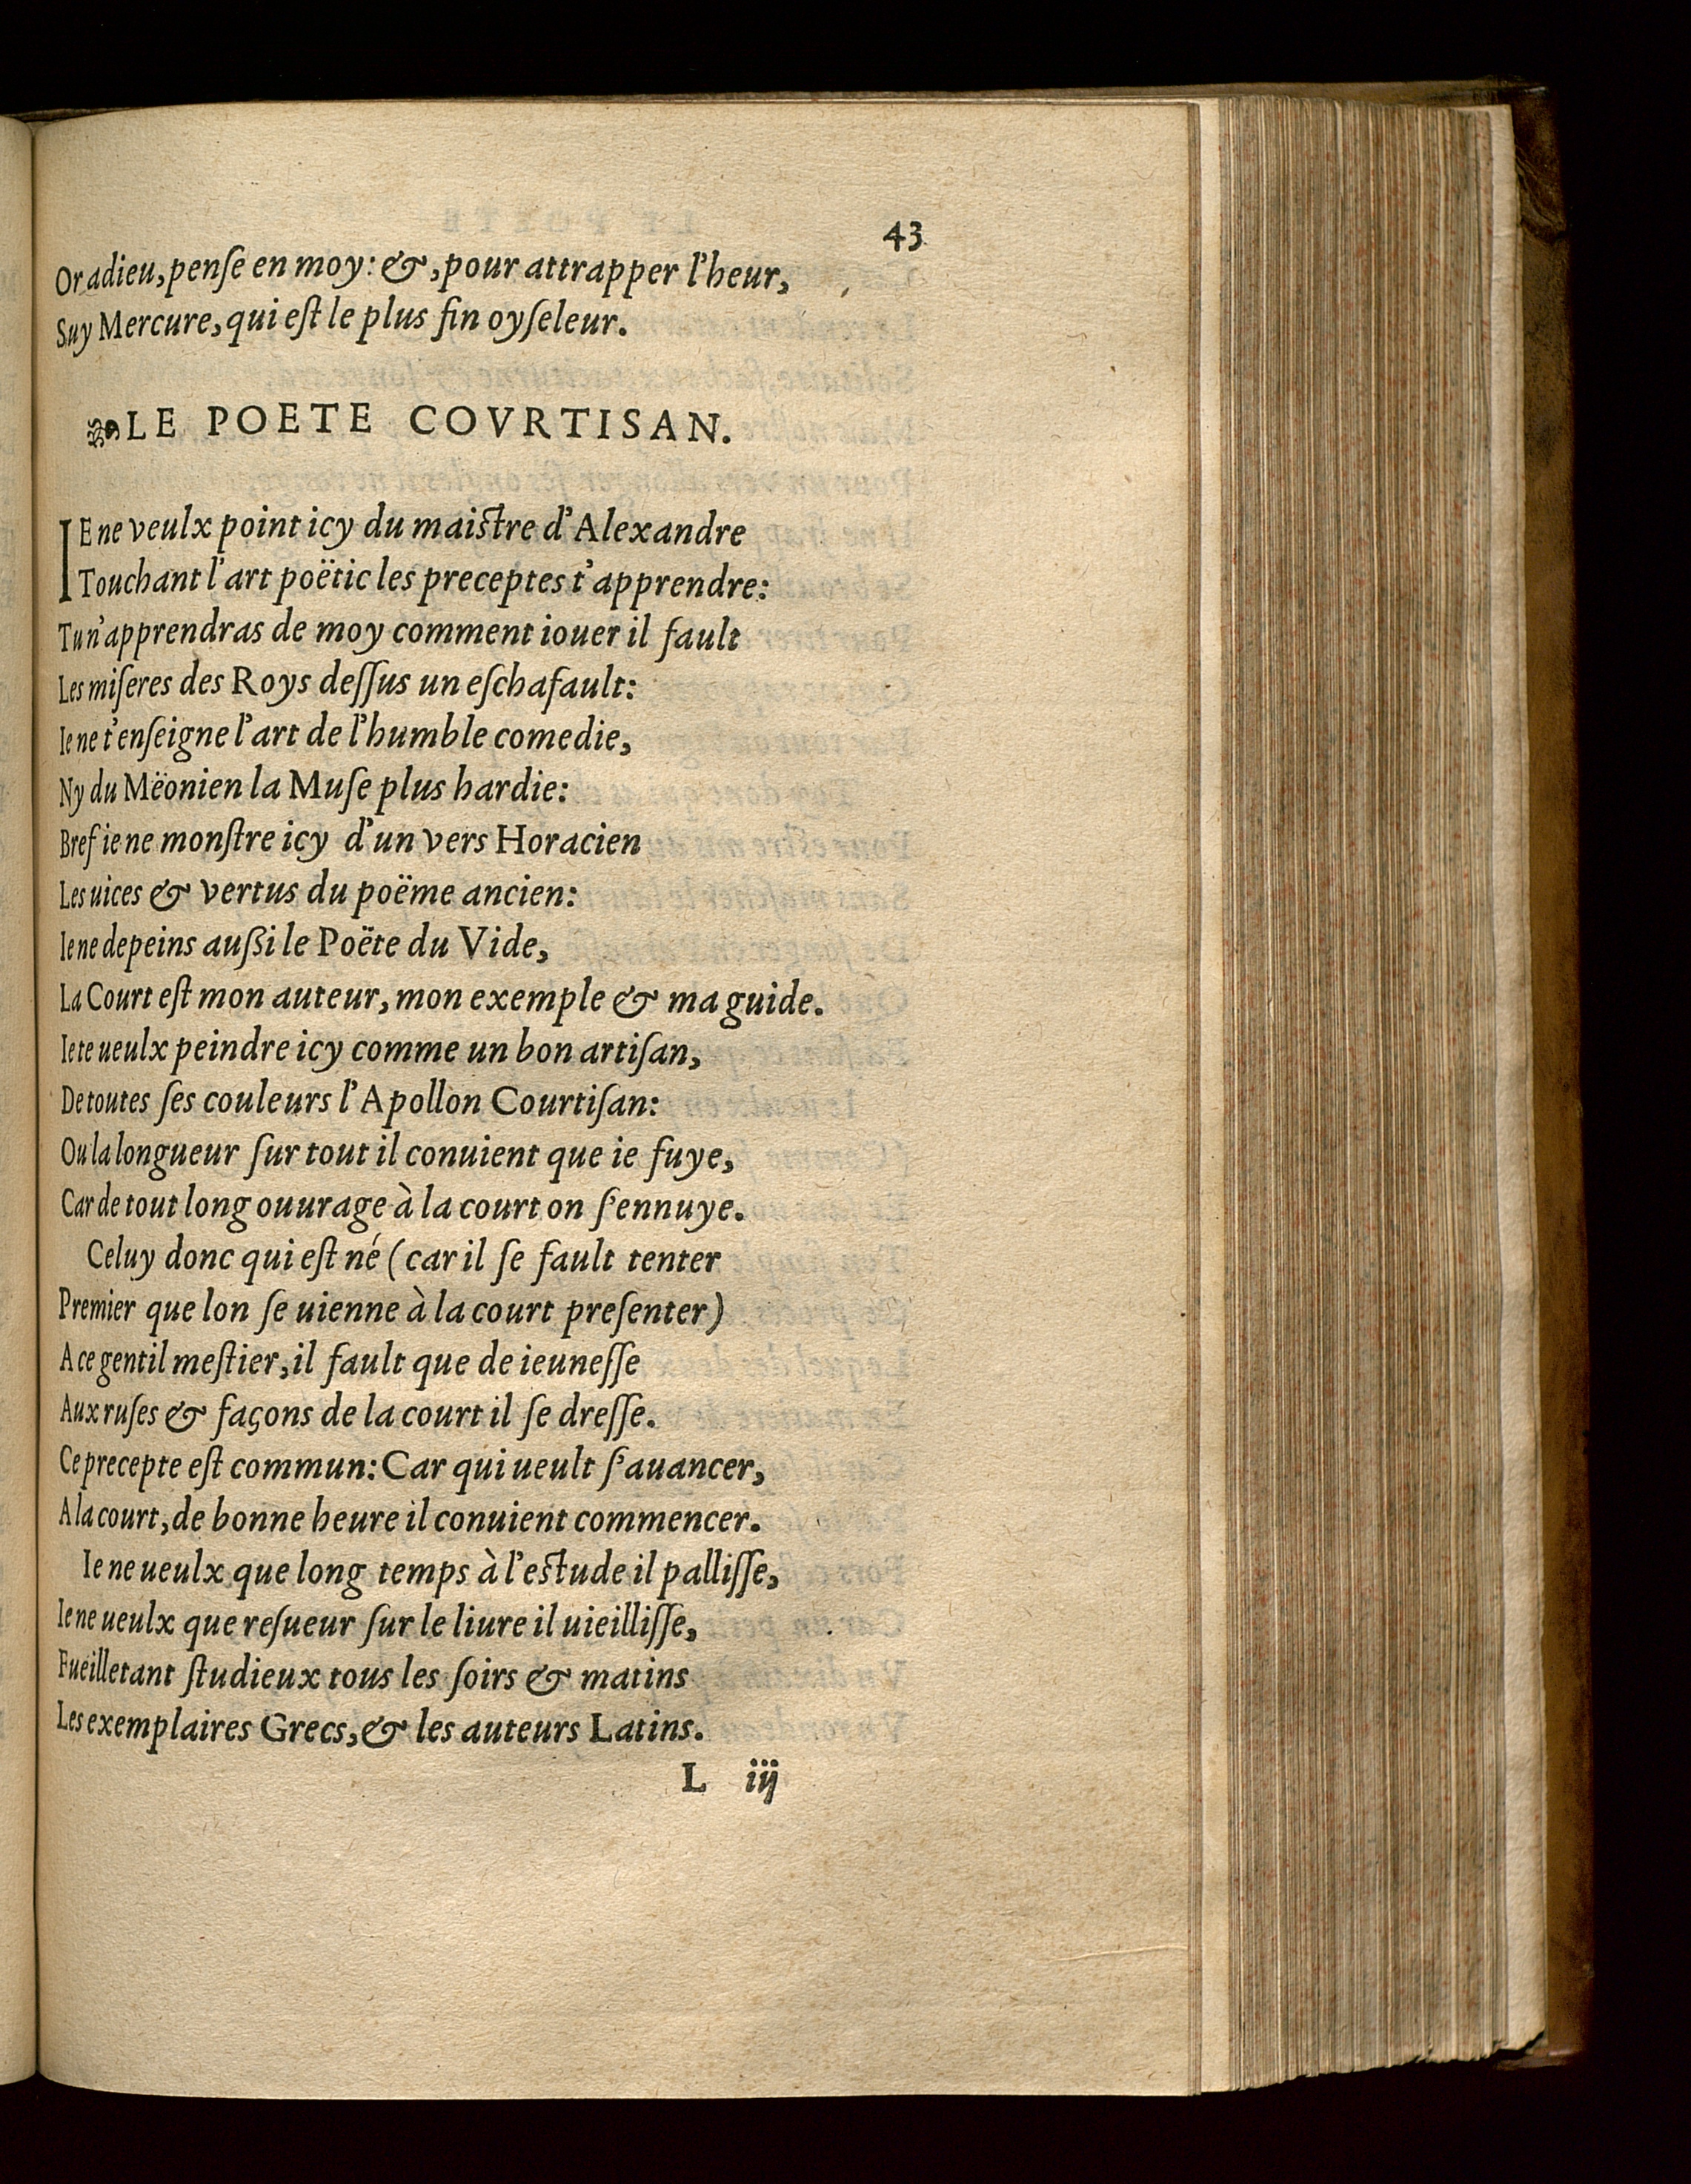 43
Or adieu, penſe en moy: &, pour attrapper l'heur,
Suy Mercure, qui eſt le plus fin oyſeleur.
LE POETE COVRTISAN.
IE ne veulx point icy du maiſtre d'Alexandre
Touchant l'art poëtic les preceptes t'apprendre:
Tu n'apprendras de moy comment iouer il fault
Les miſeres des Roys deſſus un eſchafault:
Ie ne t'enſeigne l'art de l'humble comedie,
Ny du Mëonien la Muſe plus hardie:
Bref ie ne monſtre icy d'un vers Horacien
Les uices & vertus du poëme ancien:
Ie ne depeins außi le Poëte du Vide,
La Court eſt mon auteur, mon exemple & ma guide.
Ie te ueulx peindre icy comme un bon artiſan,
De toutes ſes couleurs l'Apollon Courtiſan:
Ou la longueur ſur tout il conuient que ie fuye,
Car de tout long ouurage à la court on ſ'ennuye.
Celuy donc qui eſt né (car il ſe fault tenter
Premier que lon ſe uienne à la court preſenter)
A ce gentil meſtier, il fault que de ieuneſſe
Aux ruſes & façons de la court il ſe dreſſe.
Ce precepte eſt commun: Car qui ueult ſ'auancer,
A la court, de bonne heure il conuient commencer.
Ie ne ueulx que long temps à l'eſtude il palliſſe,
Ie ne ueulx que reſueur ſur le liure il uieilliſſe,
Fueilletant ſtudieux tous les ſoirs & matins
Les exemplaires Grecs, & les auteurs Latins.
L iij